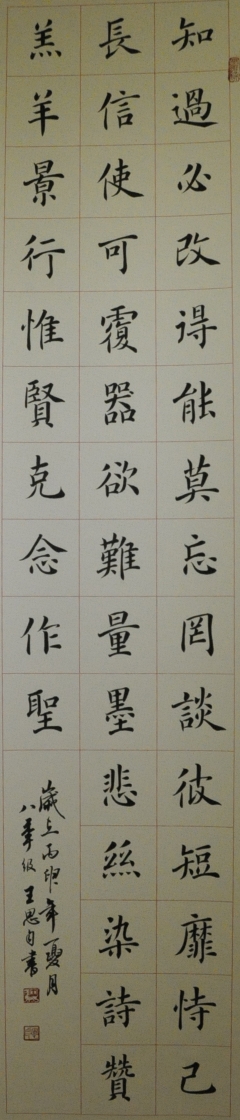 知過必改得能莫忘罔談彼短靡恃己
長信使可覆器欲難量墨悲絲染詩贊
羔羊景行惟賢克念作聖
歲在丙申年夏月
八年级王思自書